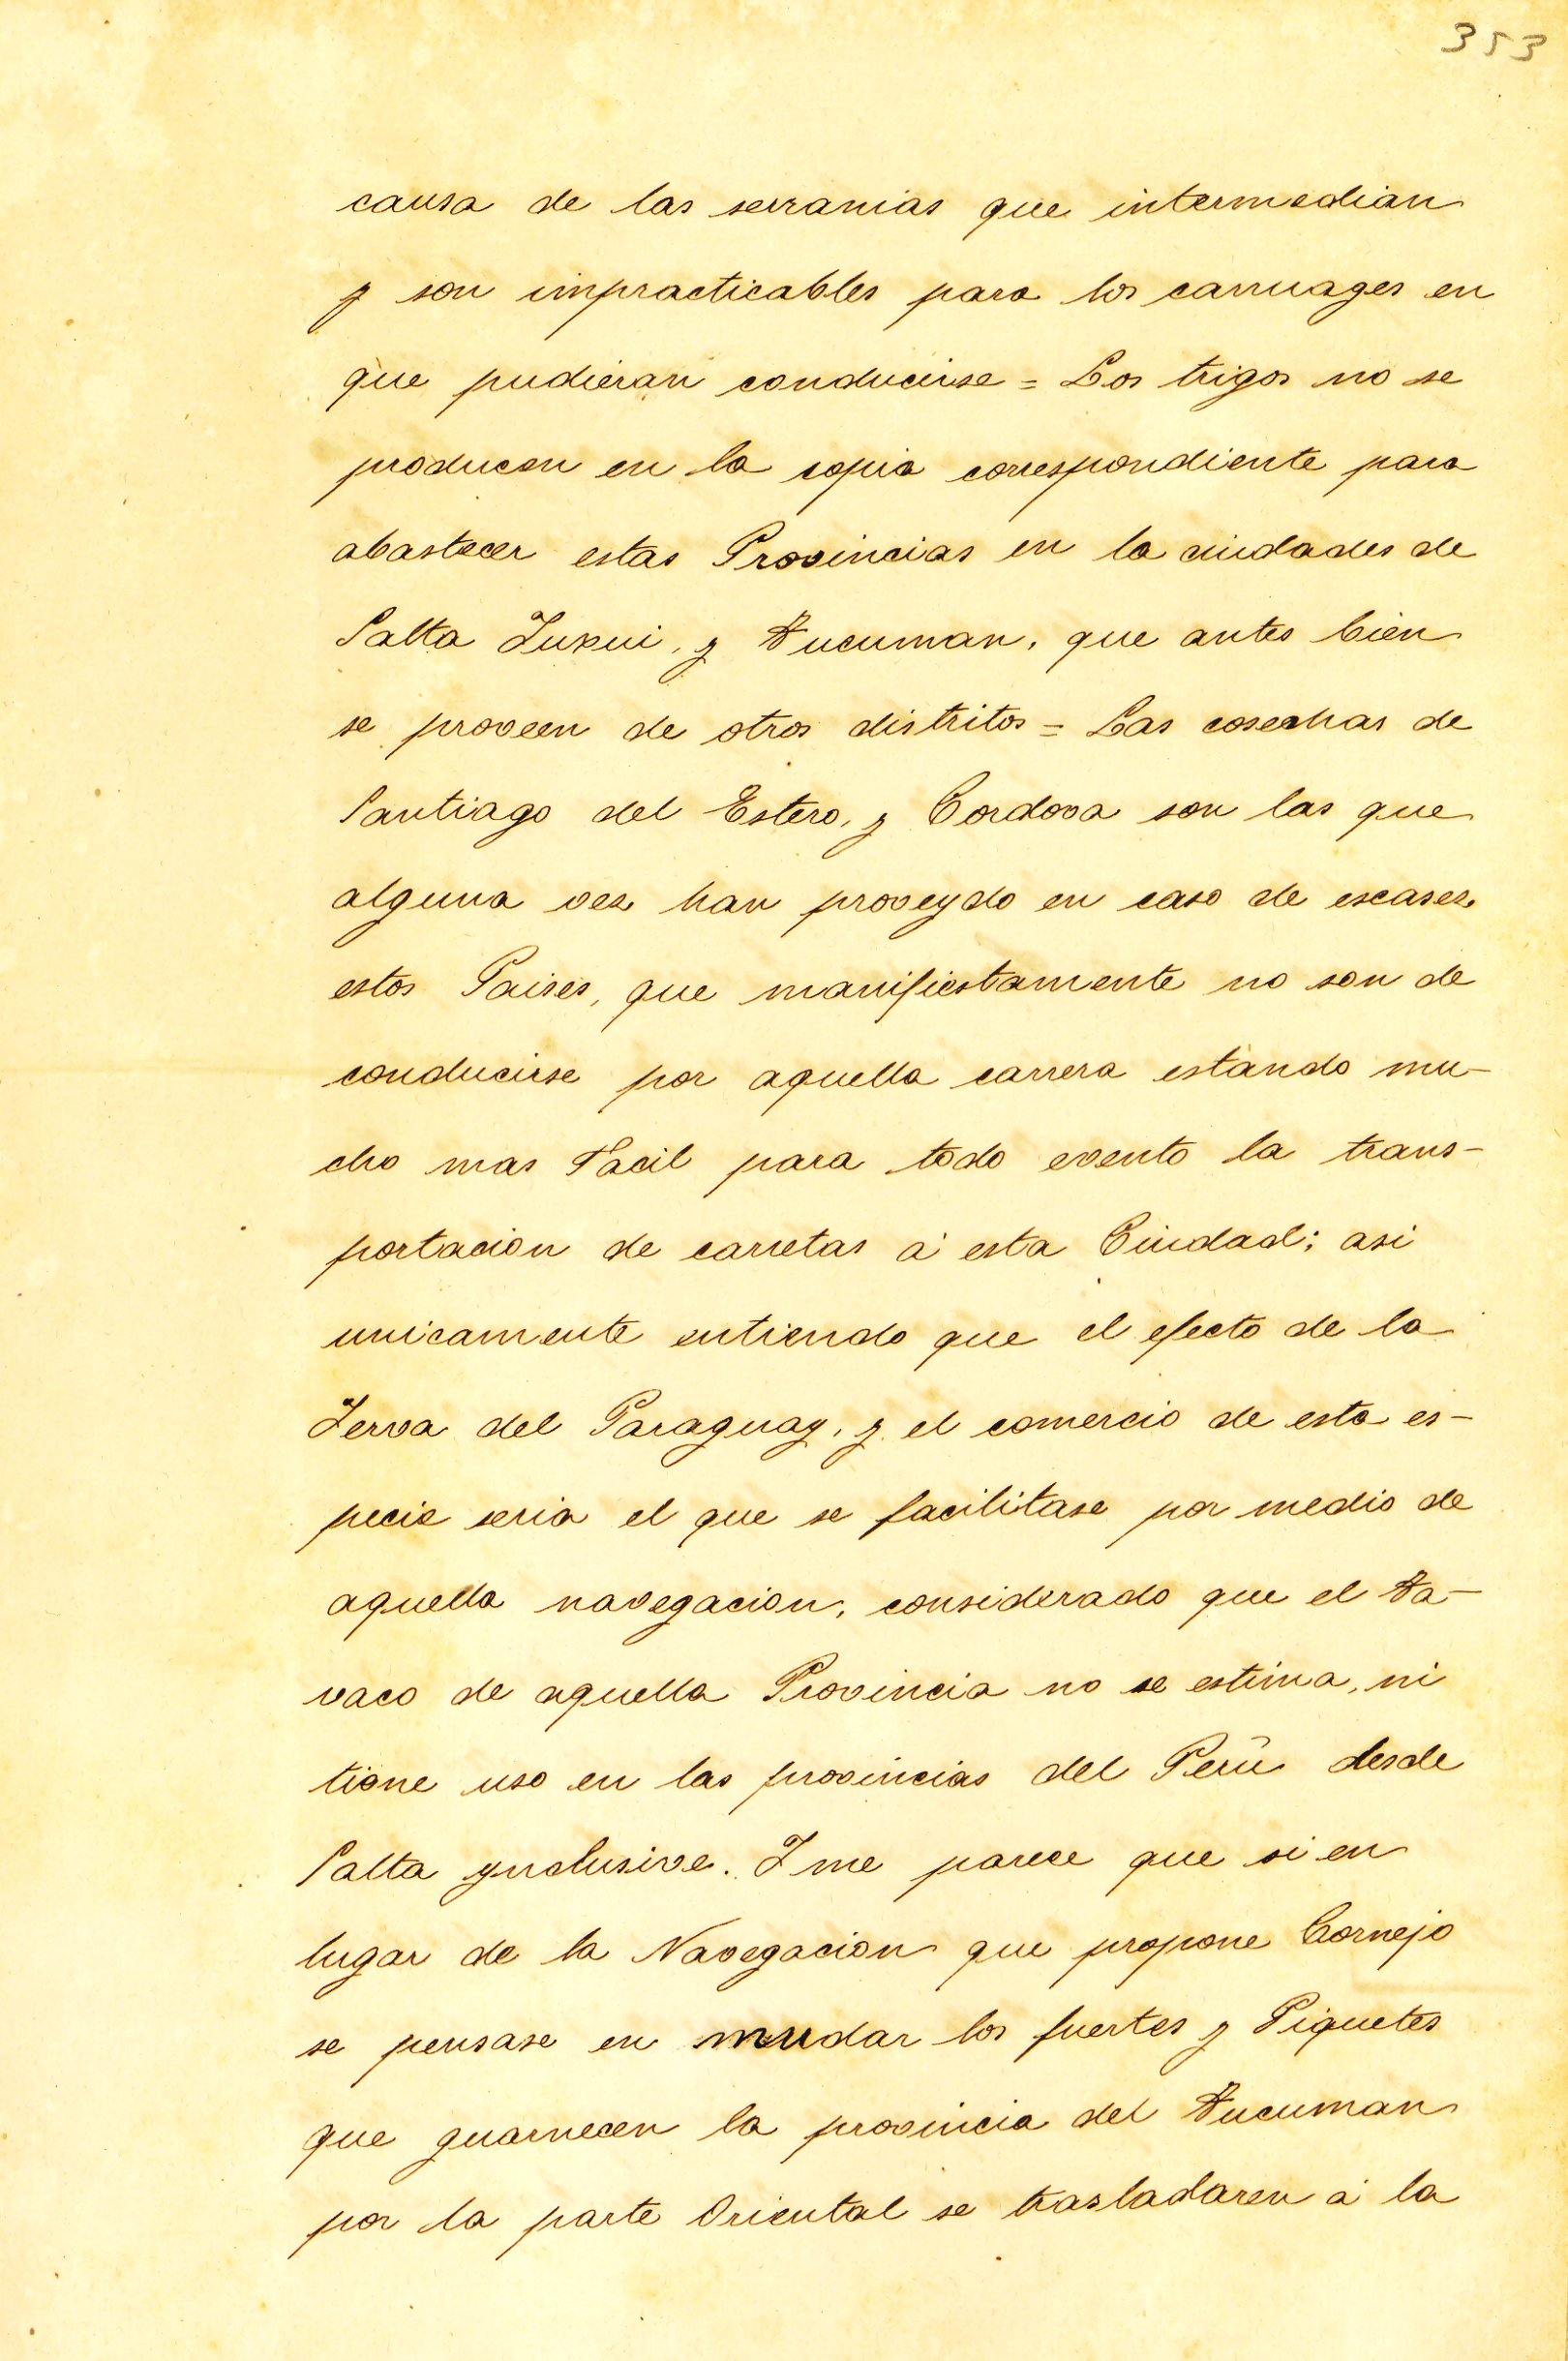 353
causa de las serranias que intermedian
y son impracticables para los carruages en
que pudieran conducirse = Los trigos no se
producen en la copia correspondiente para
abastecer estas Provincias en la ciudades de
Salta Jujui, y Tucuman, que antes bien
se proveen de otros distritos = Las cosechas de
Santiago del Estero, y Cordova son las que
alguna vez han proveydo en caso de escasez
estos Paises, que manifiestamente no son de
conducirse por aquella carrera estando mu-
cho mas facil para todo evento la trans-
portacion de carretas á esta Ciudad; asi
unicamente entiendo que el efecto de la
Yerva del Paraguay, y el comercio de esta es-
pecie seria el que se facilitase por medio de
aquella navegacion, considerado que el ta-
vaco de aquella Provincia no se estima, ni
tiene uso en las provincias del Perú desde
Salta ynclusive. Y me parece que si en
lugar de la Navegacion que propone Cornejo
se pensase en mudar los fuertes y Piquetes
que guarnecen la provincia del Tucuman
por la parte Oriental se trasladaren á la